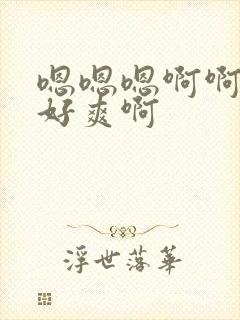 嗯嗯嗯啊啊
好爽啊
浮世落华